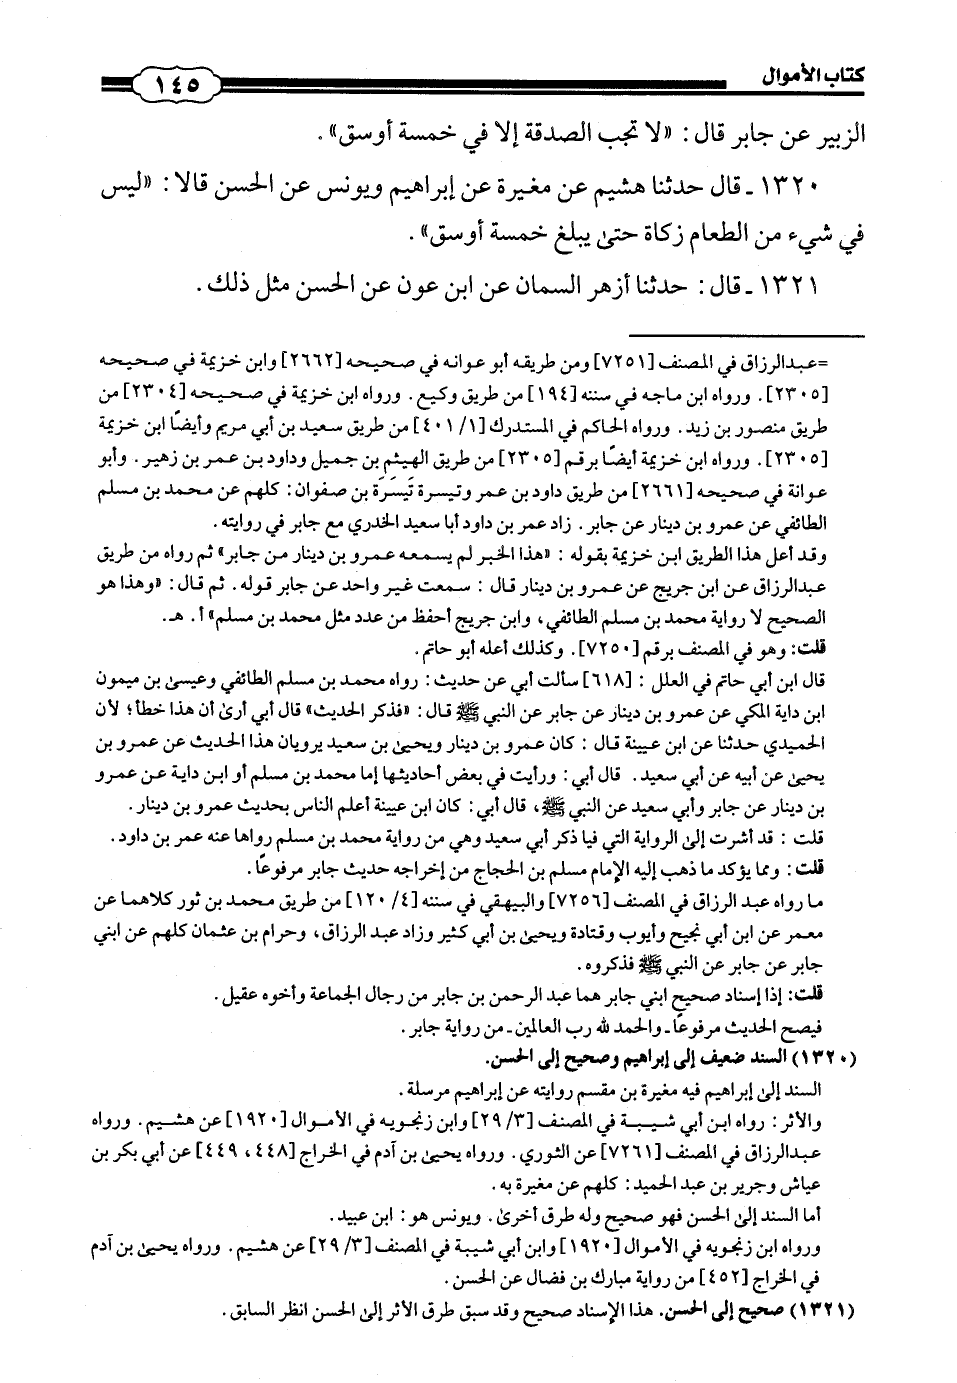 كتاب الأموال
١٤٥
الزبير عن جابر قال : «لا تجب الصدقة إلا في خمسة أوسق» .
١٣٢٠ ـ قال حدثنا هشيم عن مغيرة عن إبراهيم ويونس عن الحسن قالا : «ليس
في شيء من الطعام زكاة حتىٰ يبلغ خمسة أوسق» .
١٣٢١ ـ قال : حدثنا أزهر السمان عن ابن عون عن الحسن مثل ذلك .
=عبدالرزاق في المصنف [٧٢٥١] ومن طريقه أبو عوانه في صحيحه [٢٦٦٢] وابن خزيمة في صحيحه
[٢٣٠٥] . ورواه ابن ماجه في سننه [١٩٤] من طريق وكيع . ورواه ابن خزيمة في صحيحه [٢٣٠٤] من
طريق منصور بن زيد . ورواه الحاكم في المستدرك [١/ ٤٠١] من طريق سعيد بن أبي مريم وأيضًا ابن خزيمة
[٢٣٠٥] . ورواه ابن خزيمة أيضًا برقم [٢٣٠٥] من طريق الهيثم بن جميل وداود بن عمر بن زهير . وأبو
عوانة في صحيحه [٢٦٦١] من طريق داود بن عمر وتيسرة تَيسَرَة بن صفوان : كلهم عن محمد بن مسلم
الطائفي عن عمرو بن دينار عن جابر . زاد عمر بن داود أبا سعيد الخدري مع جابر في روايته .
وقد أعل هذا الطريق ابن خزيمة بقوله : «هذا الخبر لم يسمعه عمرو بن دينار من جابر» ثم رواه من طريق
عبدالرزاق عن ابن جريج عن عمرو بن دينار قال : سمعت غير واحد عن جابر قوله . ثم قال : «وهذا هو
الصحيح لا رواية محمد بن مسلم الطائفي، وابن جريج أحفظ من عدد مثل محمد بن مسلم» أ . هـ .
قلت: وهو في المصنف برقم [٧٢٥٠] . وكذلك أعله أبو حاتم .
قال ابن أبي حاتم في العلل : [٦١٨] سألت أبي عن حديث : رواه محمد بن مسلم الطائفي وعيسىٰ بن ميمون
ابن داية المكي عن عمرو بن دينار عن جابر عن النبي ﷺ قال : «فذكر الحديث» قال أبي أرىٰ أن هذا خطأ؛ لأن
الحميدي حدثنا عن ابن عيينة قال : كان عمرو بن دينار ويحيىٰ بن سعيد يرويان هذا الحديث عن عمرو بن
يحيىٰ عن أبيه عن أبي سعيد . قال أبي : ورأيت في بعض أحاديثها إما محمد بن مسلم أو ابن داية عن عمرو
بن دينار عن جابر وأبي سعيد عن النبي ﷺ، قال أبي : كان ابن عيينة أعلم الناس بحديث عمرو بن دينار .
قلت : قد أشرت إلىٰ الرواية التي فيا ذكر أبي سعيد وهي من رواية محمد بن مسلم رواها عنه عمر بن داود .
قلت: ومما يؤكد ما ذهب إليه الإمام مسلم بن الحجاج من إخراجه حديث جابر مرفوعًا .
ما رواه عبد الرزاق في المصنف [٧٢٥٦] والبيهقي في سننه [٤/ ١٢٠] من طريق محمد بن ثور كلاهما عن
معمر عن ابن أبي نجيح وأيوب وقتادة ويحيىٰ بن أبي كثير وزاد عبد الرزاق، وحرام بن عثمان كلهم عن ابني
جابر عن جابر عن النبي ﷺ فذكروه .
قلت: إذا إسناد صحيح ابني جابر هما عبد الرحمن بن جابر من رجال الجماعة وأخوه عقيل .
فيصح الحديث مرفوعًا ـ والحمد لله رب العالمين ـ من رواية جابر .
(١٣٢٠) السند ضعيف إلى إبراهيم وصحيح إلى الحسن.
السند إلىٰ إبراهيم فيه مغيرة بن مقسم روايته عن إبراهيم مرسلة .
والأثر : رواه ابن أبي شيبة في المصنف [٣/ ٢٩] وابن زنجويه في الأموال [١٩٢٠] عن هشيم . ورواه
عبدالرزاق في المصنف [٧٢٦١] عن الثوري . ورواه يحيىٰ بن آدم في الخراج [٤٤٨، ٤٤٩] عن أبي بكر بن
عياش وجرير بن عبد الحميد : كلهم عن مغيرة به .
أما السند إلىٰ الحسن فهو صحيح وله طرق أخرىٰ . ويونس هو : ابن عبيد .
ورواه ابن زنجويه في الأموال [١٩٢٠] وابن أبي شيبة في المصنف [٣/ ٢٩] عن هشيم . ورواه يحيىٰ بن آدم
في الخراج [٤٥٢] من رواية مبارك بن فضال عن الحسن .
(١٣٢١) صحيح إلى الحسن. هذا الإسناد صحيح وقد سبق طرق الأثر إلىٰ الحسن انظر السابق .